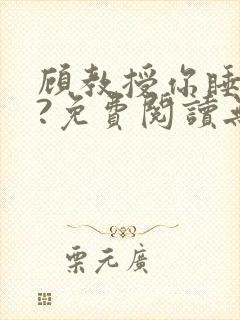 顾教授你睡
?免費閱讀
栗元廣